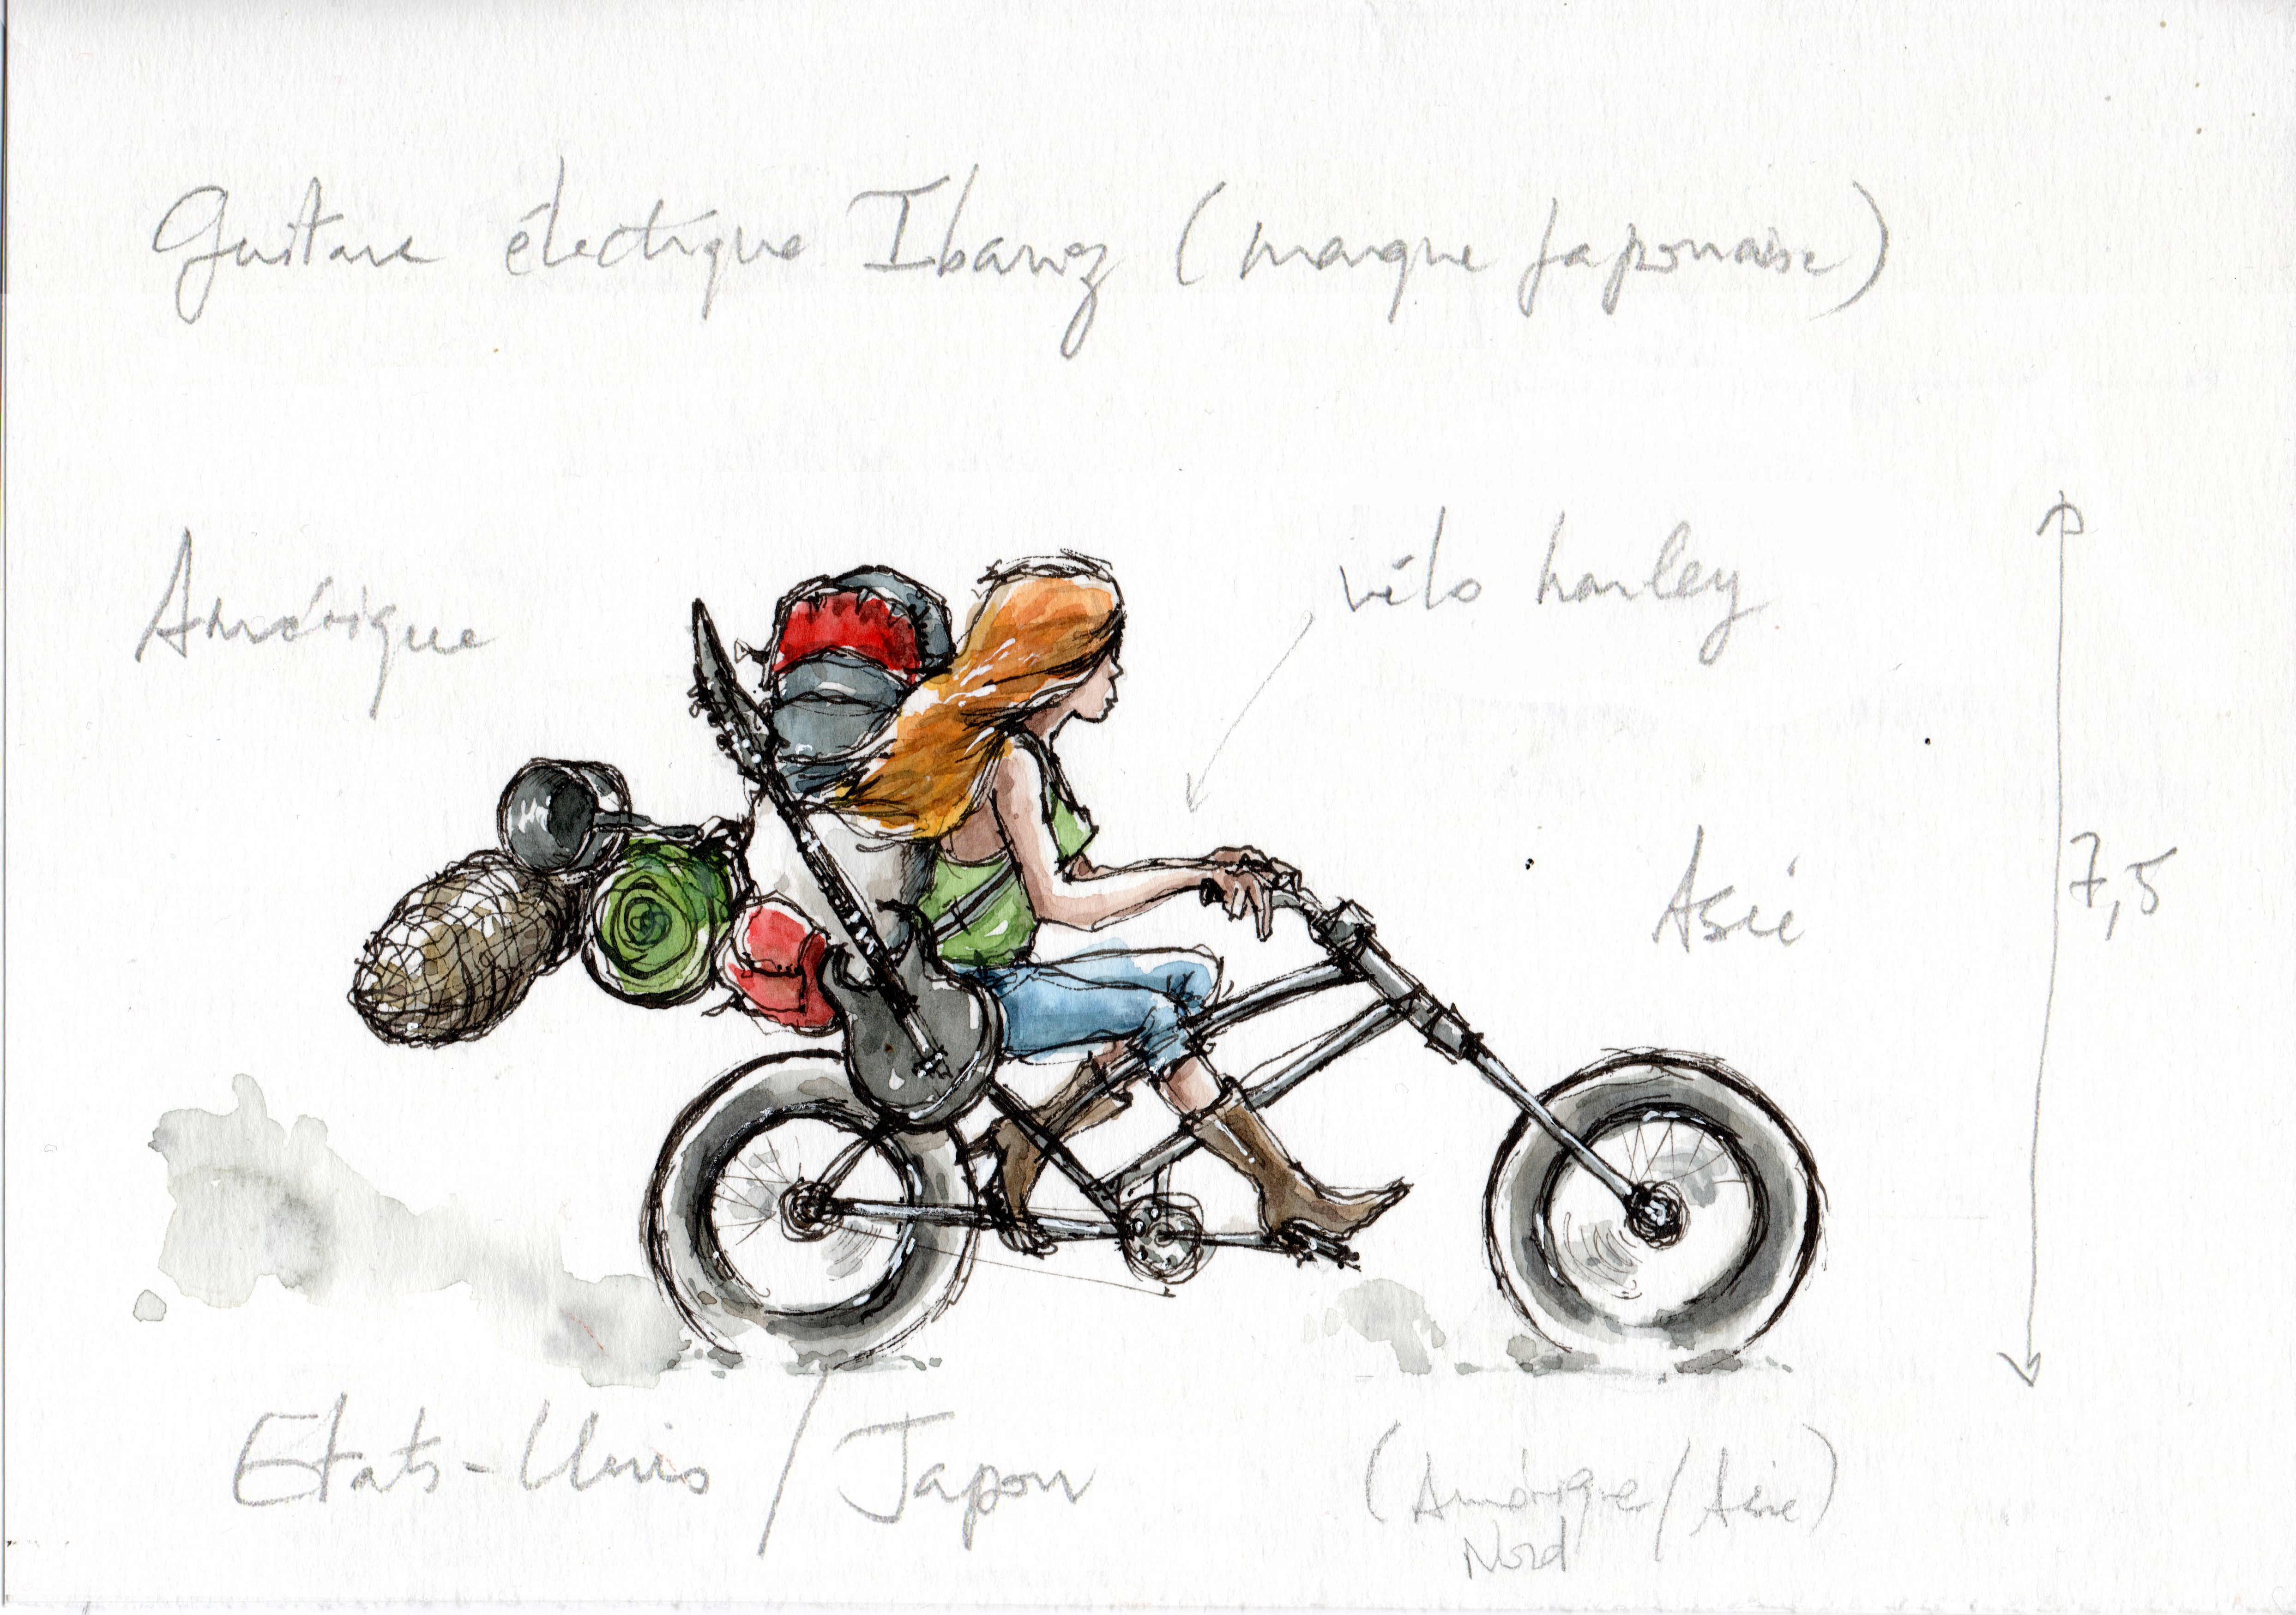 Guitare électrique Ibanez (marque Japonaise)
Amérique
vélo harley
Asie
7,5
Etats-Unis / Japon
(Amérique / Asie)
Nord